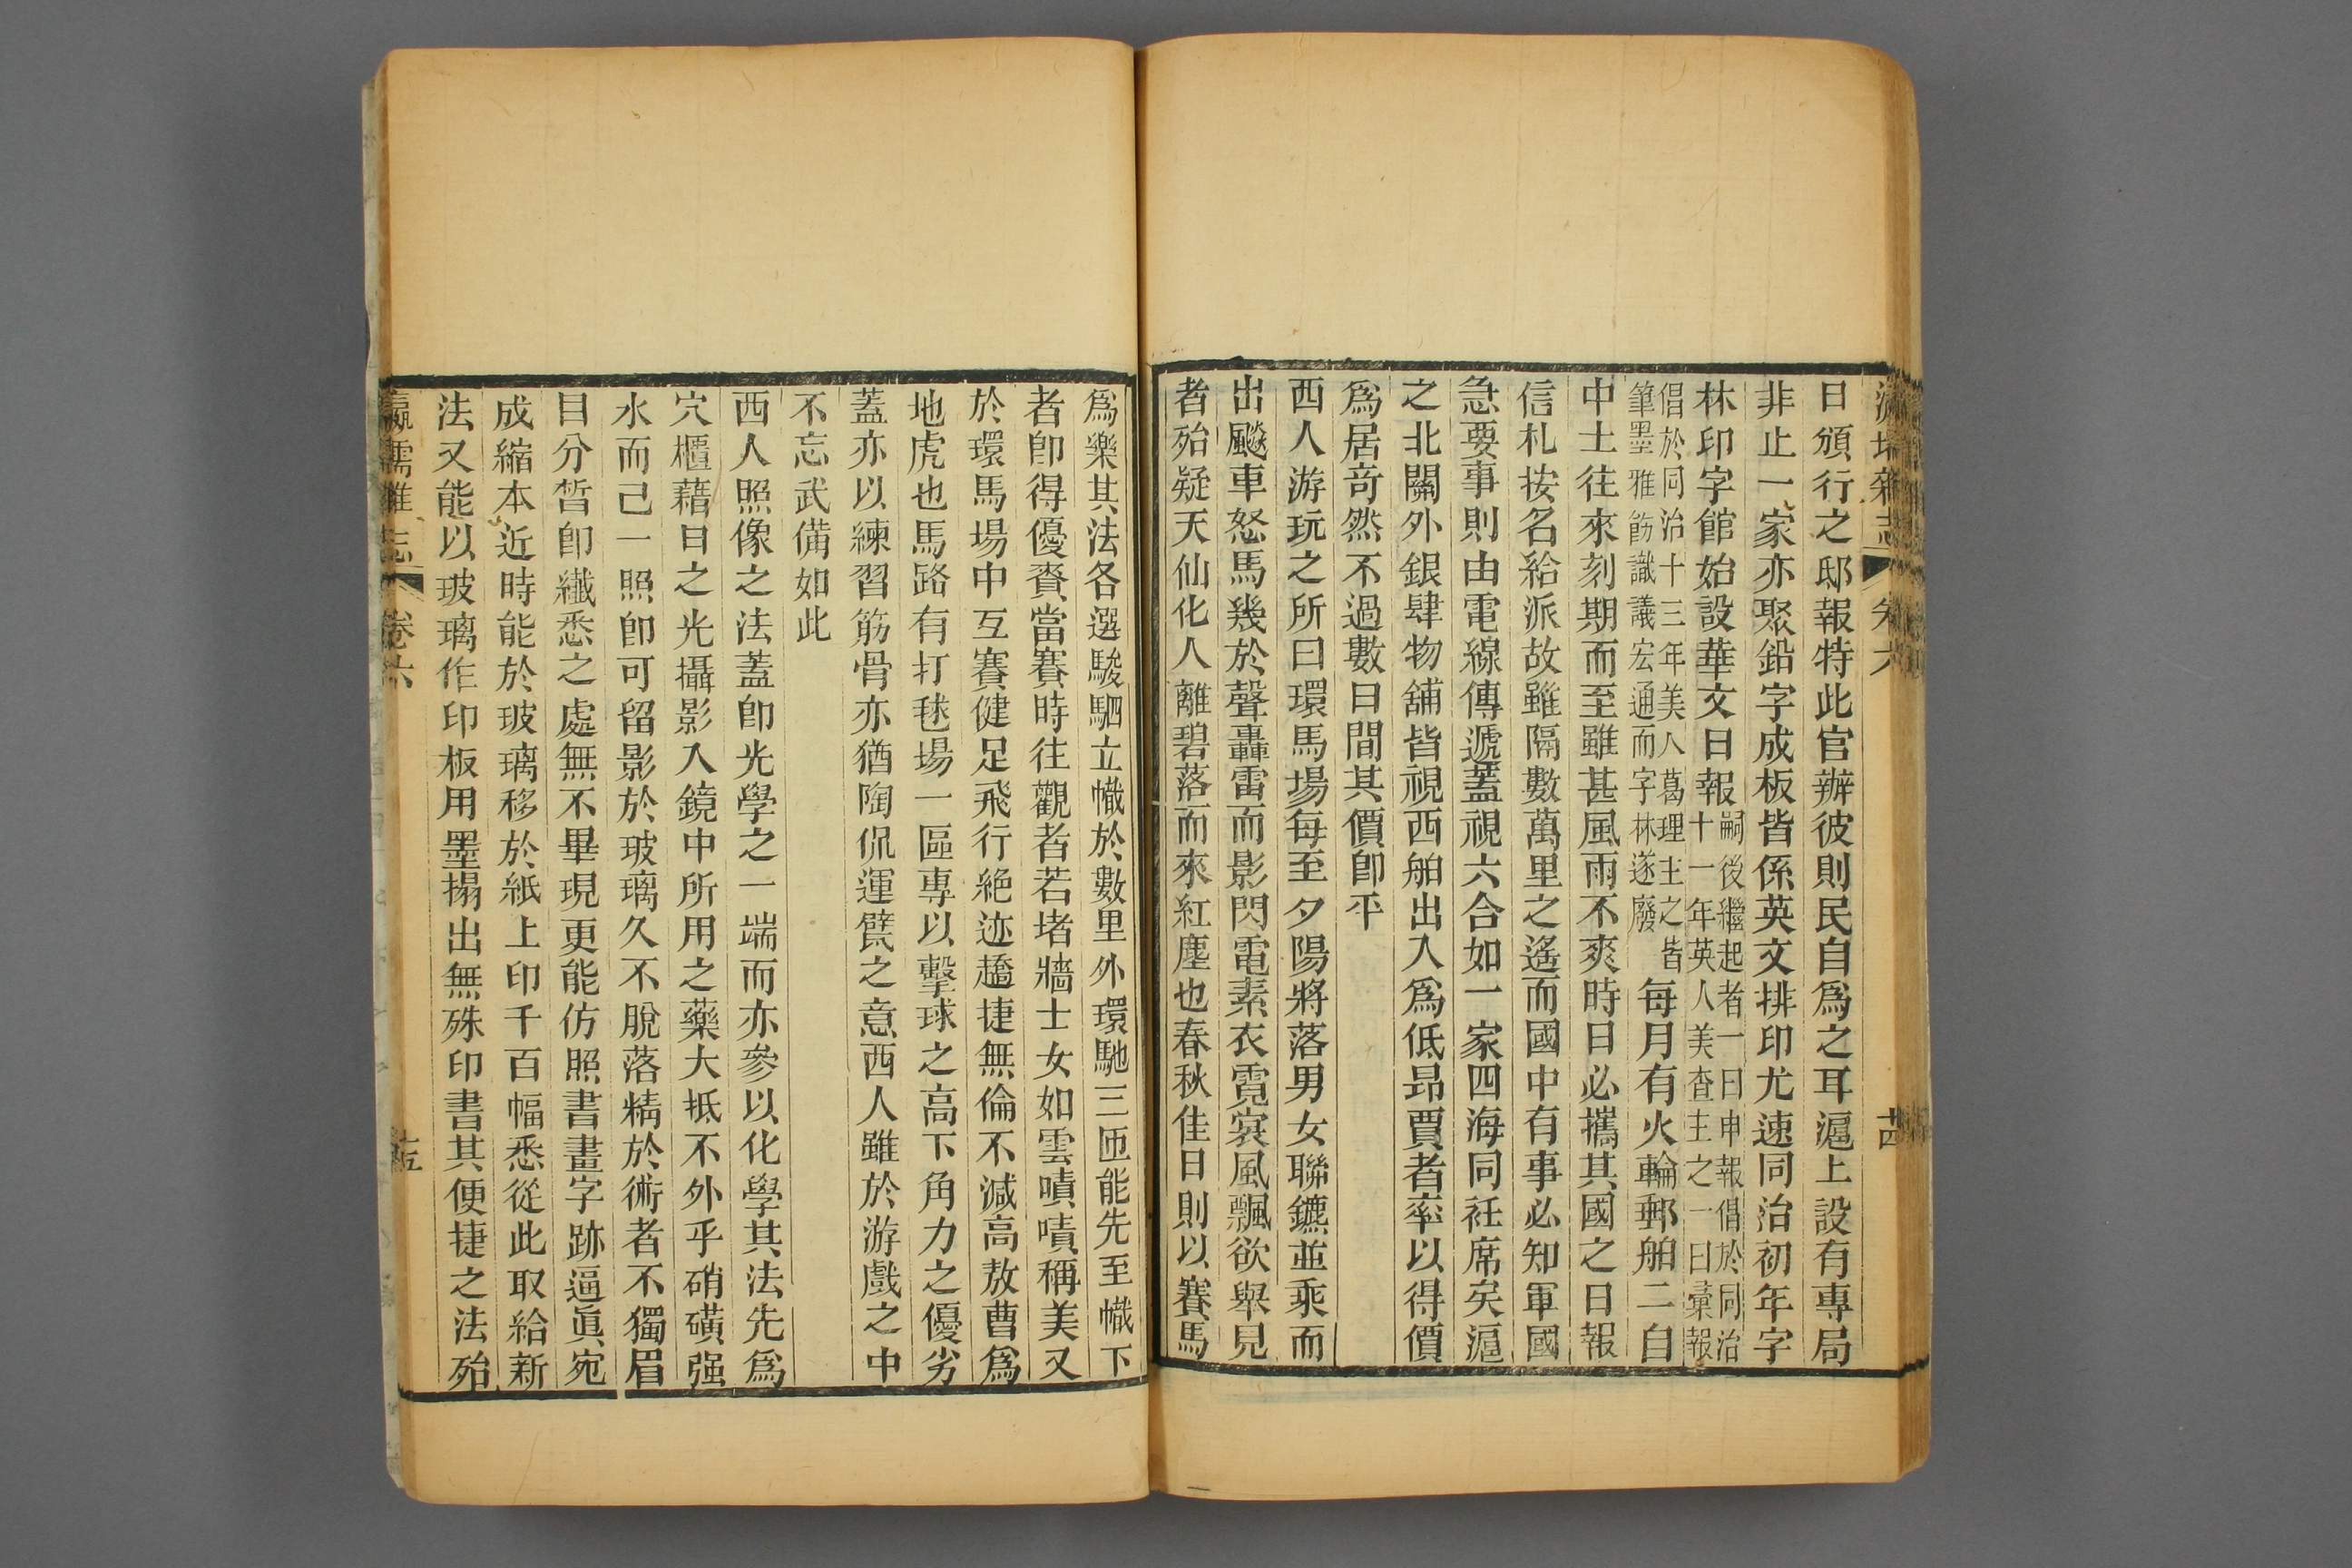 瀛壖雜志 卷六 十四
日頒行之邸報特此官辦彼則民自爲之耳滬上設有專局
非止一家亦聚鉛字成板皆係英文排印尤速同治初年字
林印字館始設華文日報嗣後繼起者一曰申報倡於同治十一年英人美查主之一曰彙報
倡於同治十三年美人葛理主之皆筆墨雅飭識議宏通而字林遂廢每月有火輪郵舶二自
中土往來刻期而至雖甚風雨不爽時日必攜其國之日報
信札按名給派故雖隔數萬里之遙而國中有事必知軍國
急要事則由電線傳遞蓋視六合如一家四海同衽席矣滬
之北關外銀肆物舖皆視西舶出入爲低昻賈者率以得價
爲居奇然不過數日間其價卽平
西人游玩之所曰環馬場每至夕陽將落男女聯鑣並乘而
出颷車怒馬幾於聲轟雷而影閃電素衣霓裳風飄欲舉見
者殆疑天仙化人離碧落而來紅塵也春秋佳日則以賽馬
爲樂其法各選駿駟立幟於數里外環馳三匝能先至幟下
者卽得優賚當賽時往觀者若堵牆士女如雲嘖嘖稱美又
於環馬場中互賽健足飛行絶迹趫捷無倫不減高敖曹爲
地虎也馬路有打毬場一區專以擊球之高下角力之優劣
蓋亦以練習筋骨亦猶陶侃運甓之意西人雖於游戲之中
不忘武備如此
西人照像之法蓋卽光學之一端而亦參以化學其法先爲
穴櫃藉日之光攝影入鏡中所用之藥大抵不外乎硝磺强
水而已一照卽可留影於玻璃久不脫落精於術者不獨眉
目分晳卽纖悉之處無不畢現更能仿照書畫字跡逼眞宛
成縮本近時能於玻璃移於紙上印千百幅悉從此取給新
法又能以玻璃作印板用墨搨出無殊印書其便捷之法殆
瀛壖雜志 卷六 十五